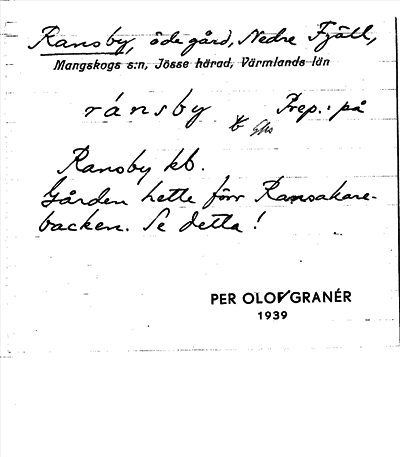 Ransby, öde gård, Nedre Fjäll,
Mangskogs s:n, Jösse härad, Värmlands län
ránsby Prep.: på
Ransby kb.
Gården hette förr Ransakare-
backen. Se detta!
PER OLOV GRANÉR
1939